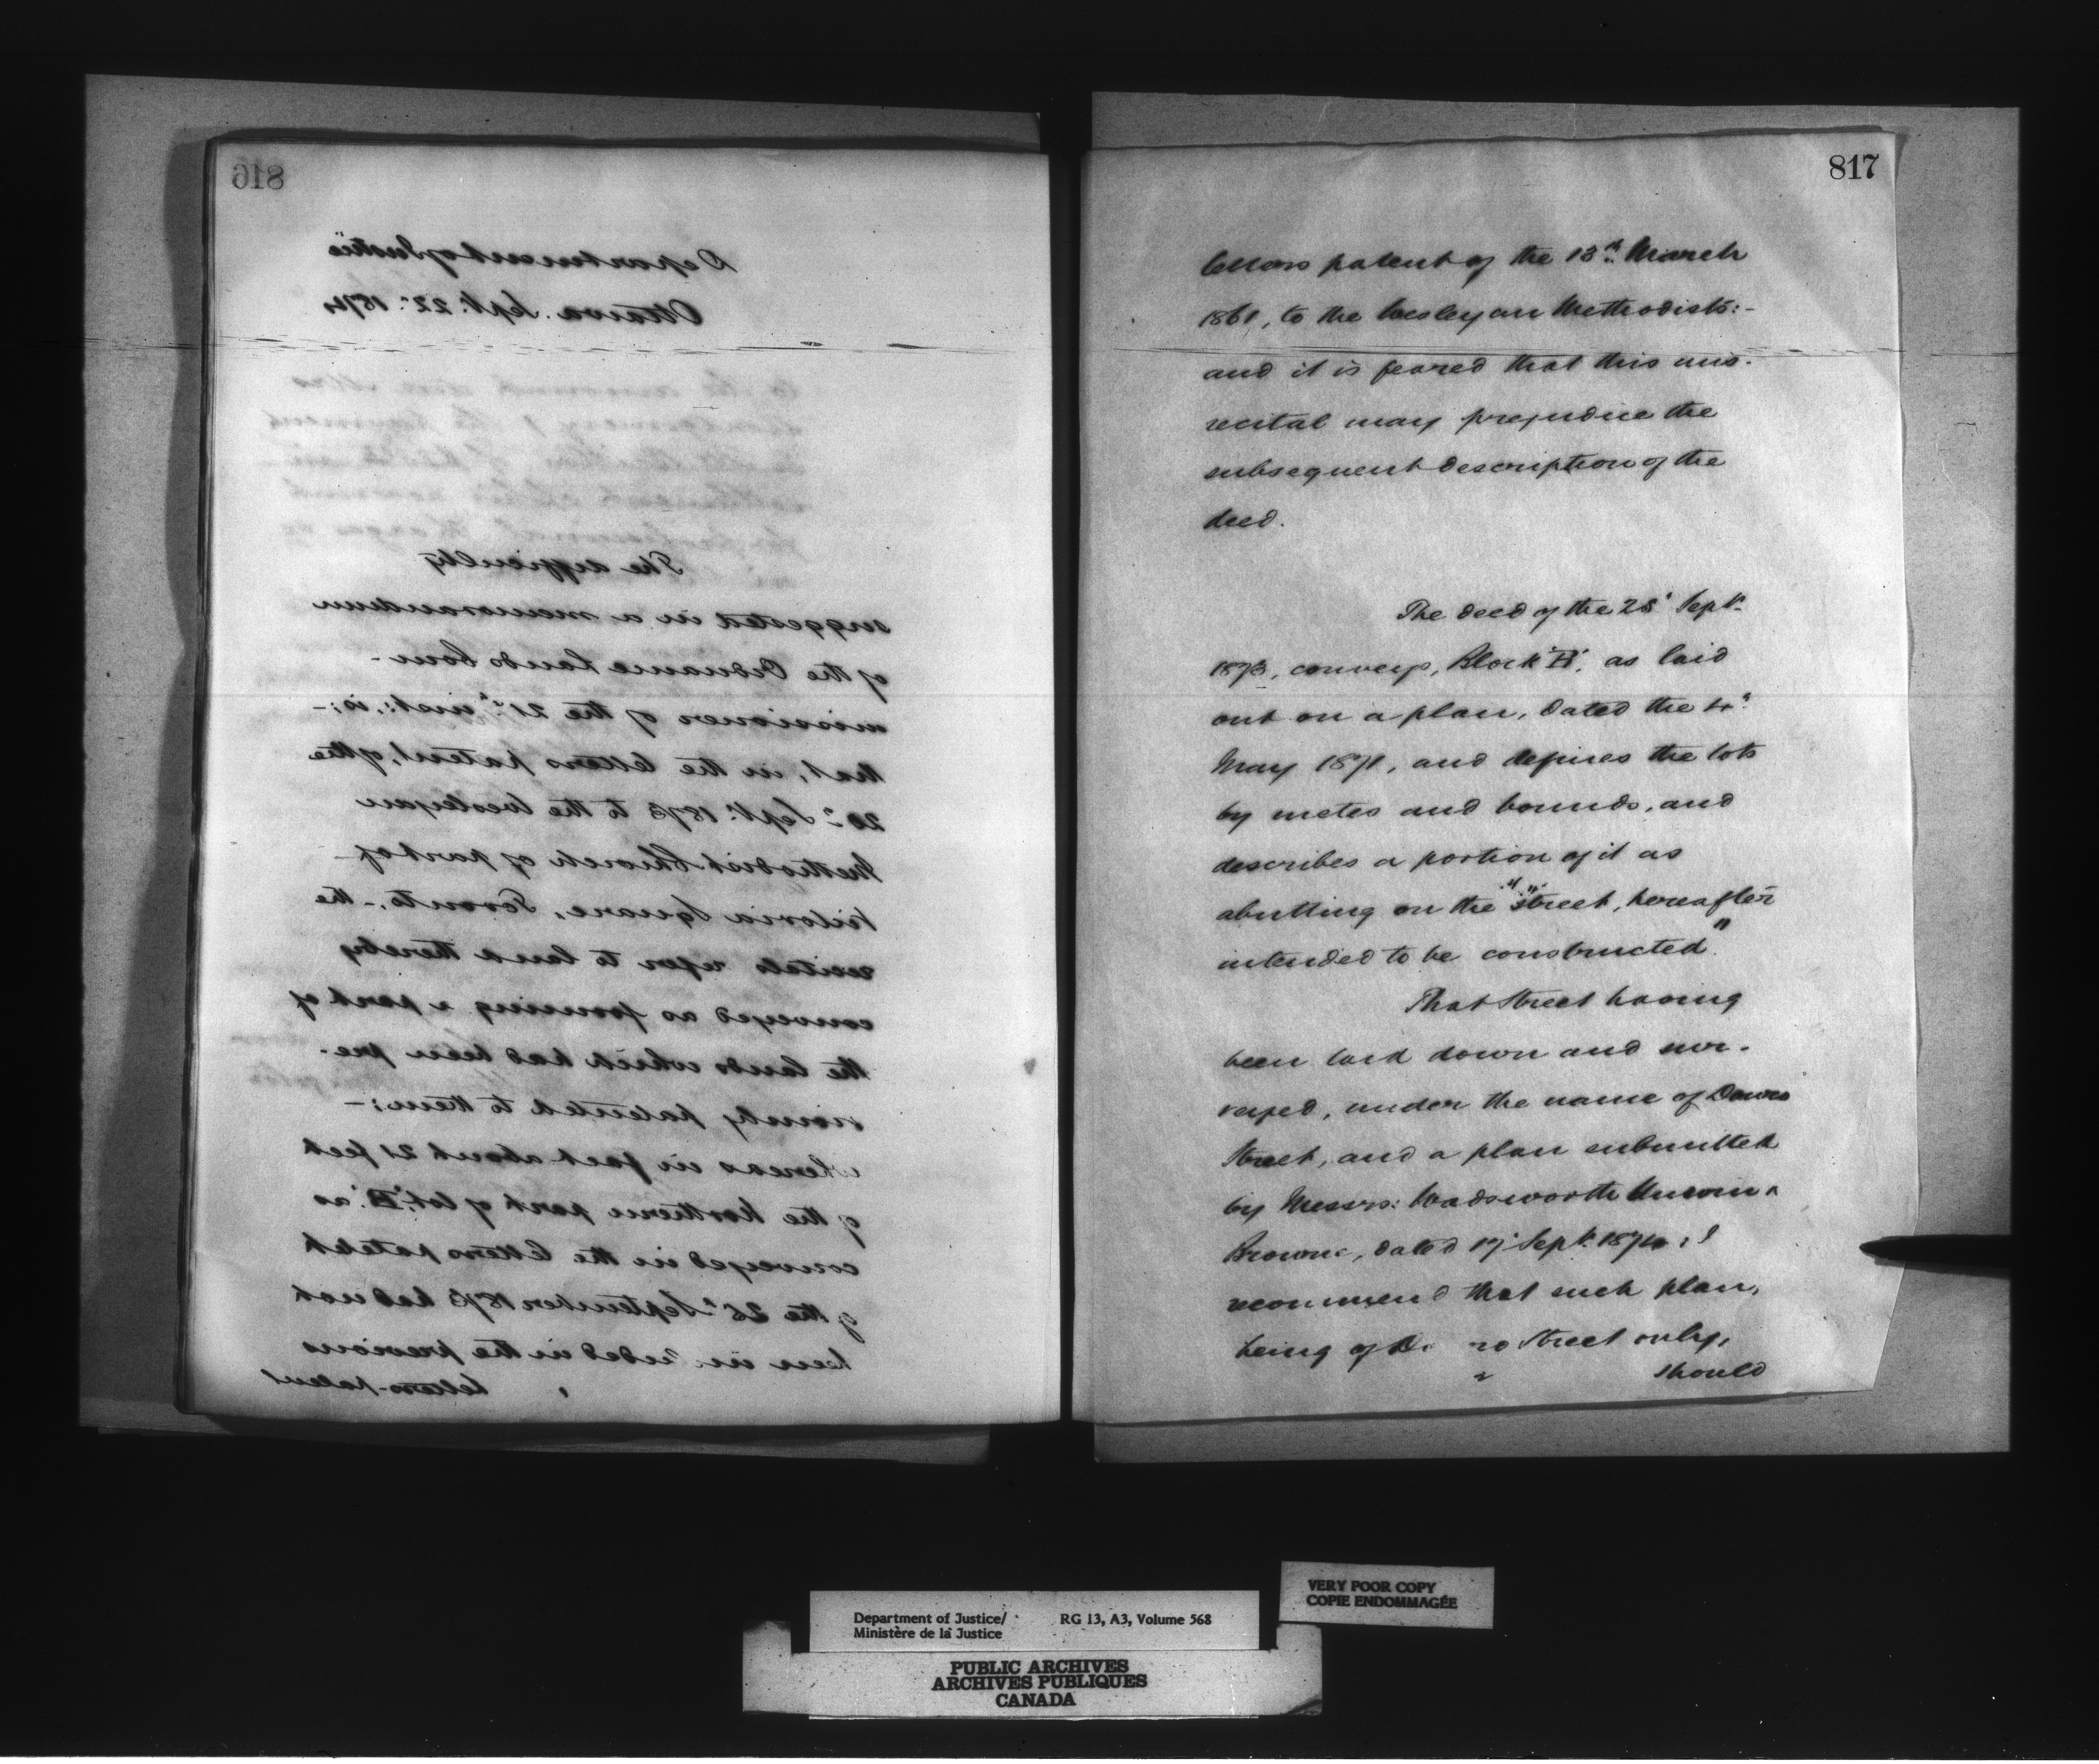 816
Department of Justice
Ottawa. Sept. 22. 1874
The difficulty
suggested in a memorandum
of the Ordnance Lands Com-
missioner of the 21st inst:, is:-
that, in the letters patent, of the
Sept: 1873 to the Wesleyan
Methodist Church of part of
Victoria Square, Toronto,- the
recitals refer to land thereby
conveyed as forming a part of
the lands which had been pre-
viously patented to them:-
whereas in fact about 21 feet
of the northern part of lot "B" as
conveyed in the letters patent
of the September 1873 had not
been in the previous
letters-patent
817
letters patent of the 13th March
1861, to the Wesleyan Methodists:-
and it is feared that this mis-
recital may prejudice the
subsequent description of the
deed.
The deed of the Sept.
1873, conveys, Block "B", as laid
out on a plan, dated the 4"
May 1871, and defines the lots
by metes and bounds, and
describes a portion of it as
abutting on the "street, hereafter
intended to be constructed"
That street having
been laid down and sur-
veyed, under the name of
Street, and a plan submitted
by Messrs: Wadsworth Unwin &
Browne, dated 17 Sept. 1874: I
recommend that such plan,
being of Street only,
should
Department of Justice/ RG 13, A3, Volume 568
Ministère de la Justice
VERY POOR COPY
COPIE ENDOMMAGÉE
PUBLIC ARCHIVES
ARCHIVES PUBLIQUES
CANADA